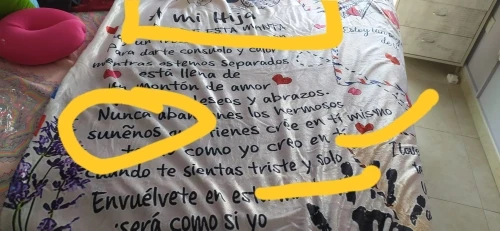 A mi Hija
ESTA MANTA
Para darte consuelo y calor
mientras estemos separados
está llena de
un montón de amor
deseos y abrazos.
Nunca abandones los hermosos
suneños que tienes cree en ti mismo
como yo creo en ti
Cuando te sientas triste y solo
Envuélvete en
será como si yo
Estoy